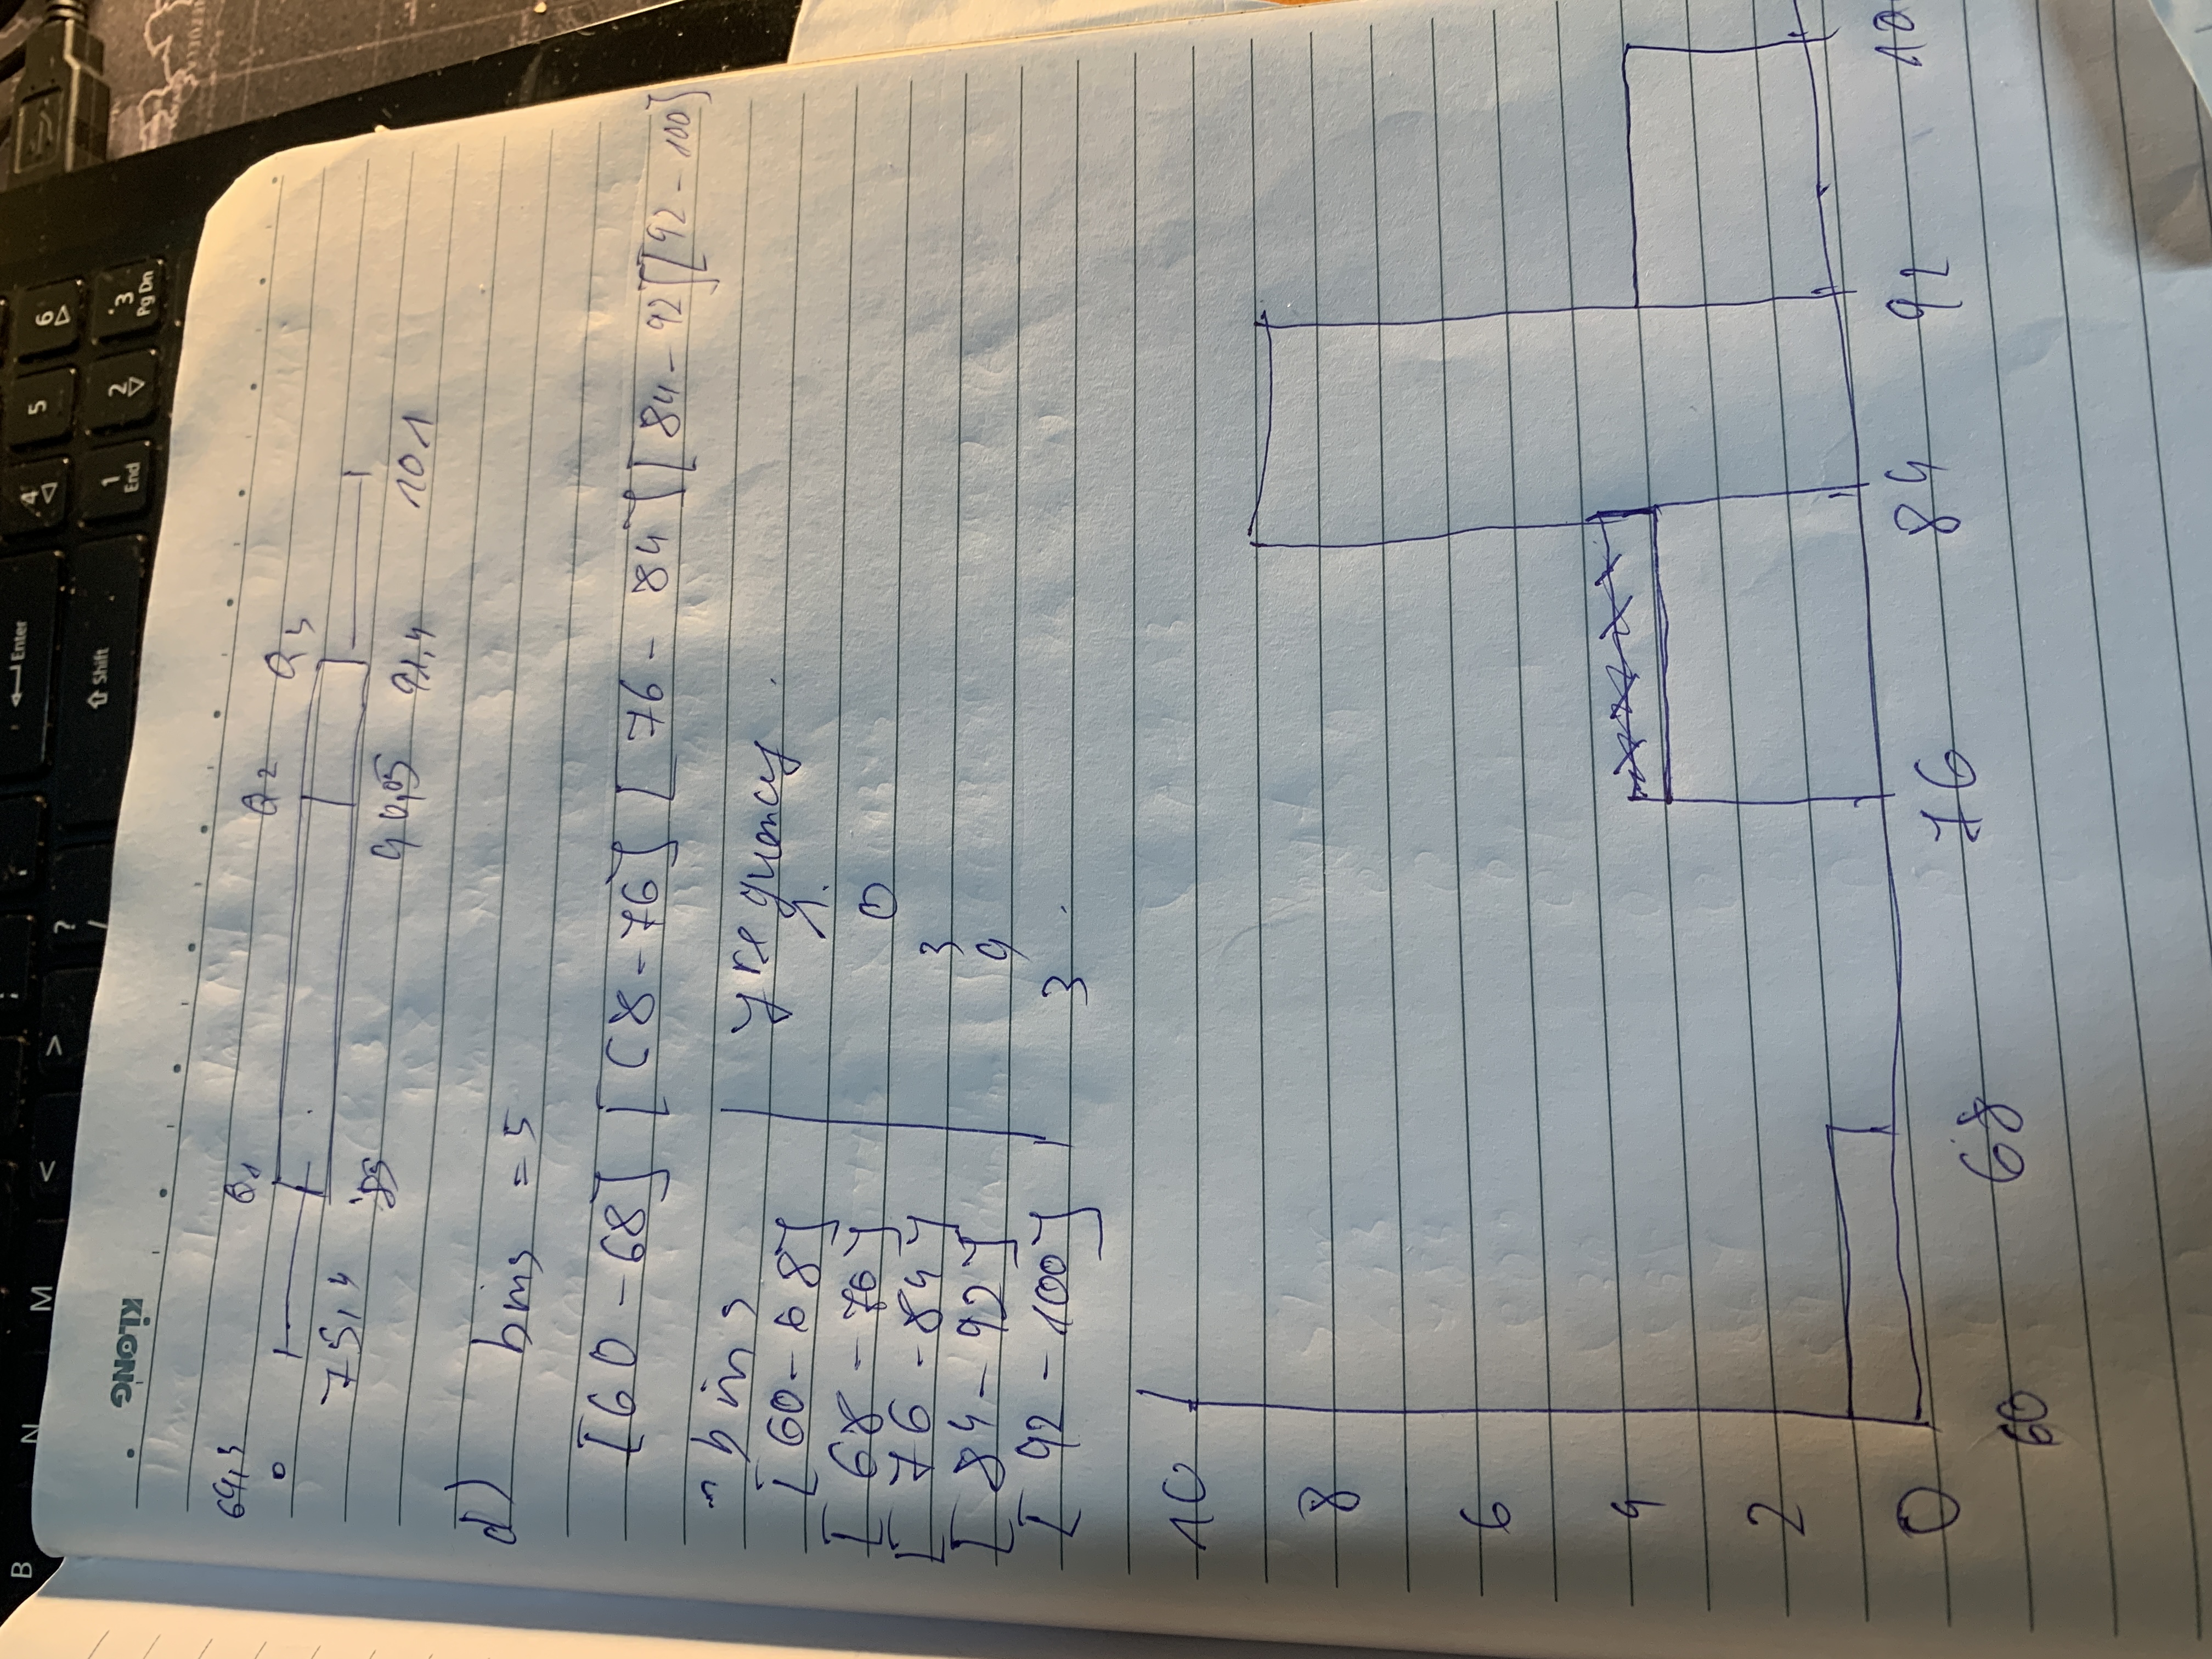 B N M < > ? / Enter 4 5 6
Shift 1 End 2 3 Pg Dn
KLONG
64,3 Q1 Q2 Q3
75,4 85 90,05 91,4 101
d) bins = 5
[60 - 68] [68 - 76] [76 - 84] [84 - 92] [92 - 100]
bins yrequency
[60 - 68] 1
[68 - 76] 0
[76 - 84] 3
[84 - 92] 9
[92 - 100] 3
10
8
6
4
2
0
60 68 76 84 92 10